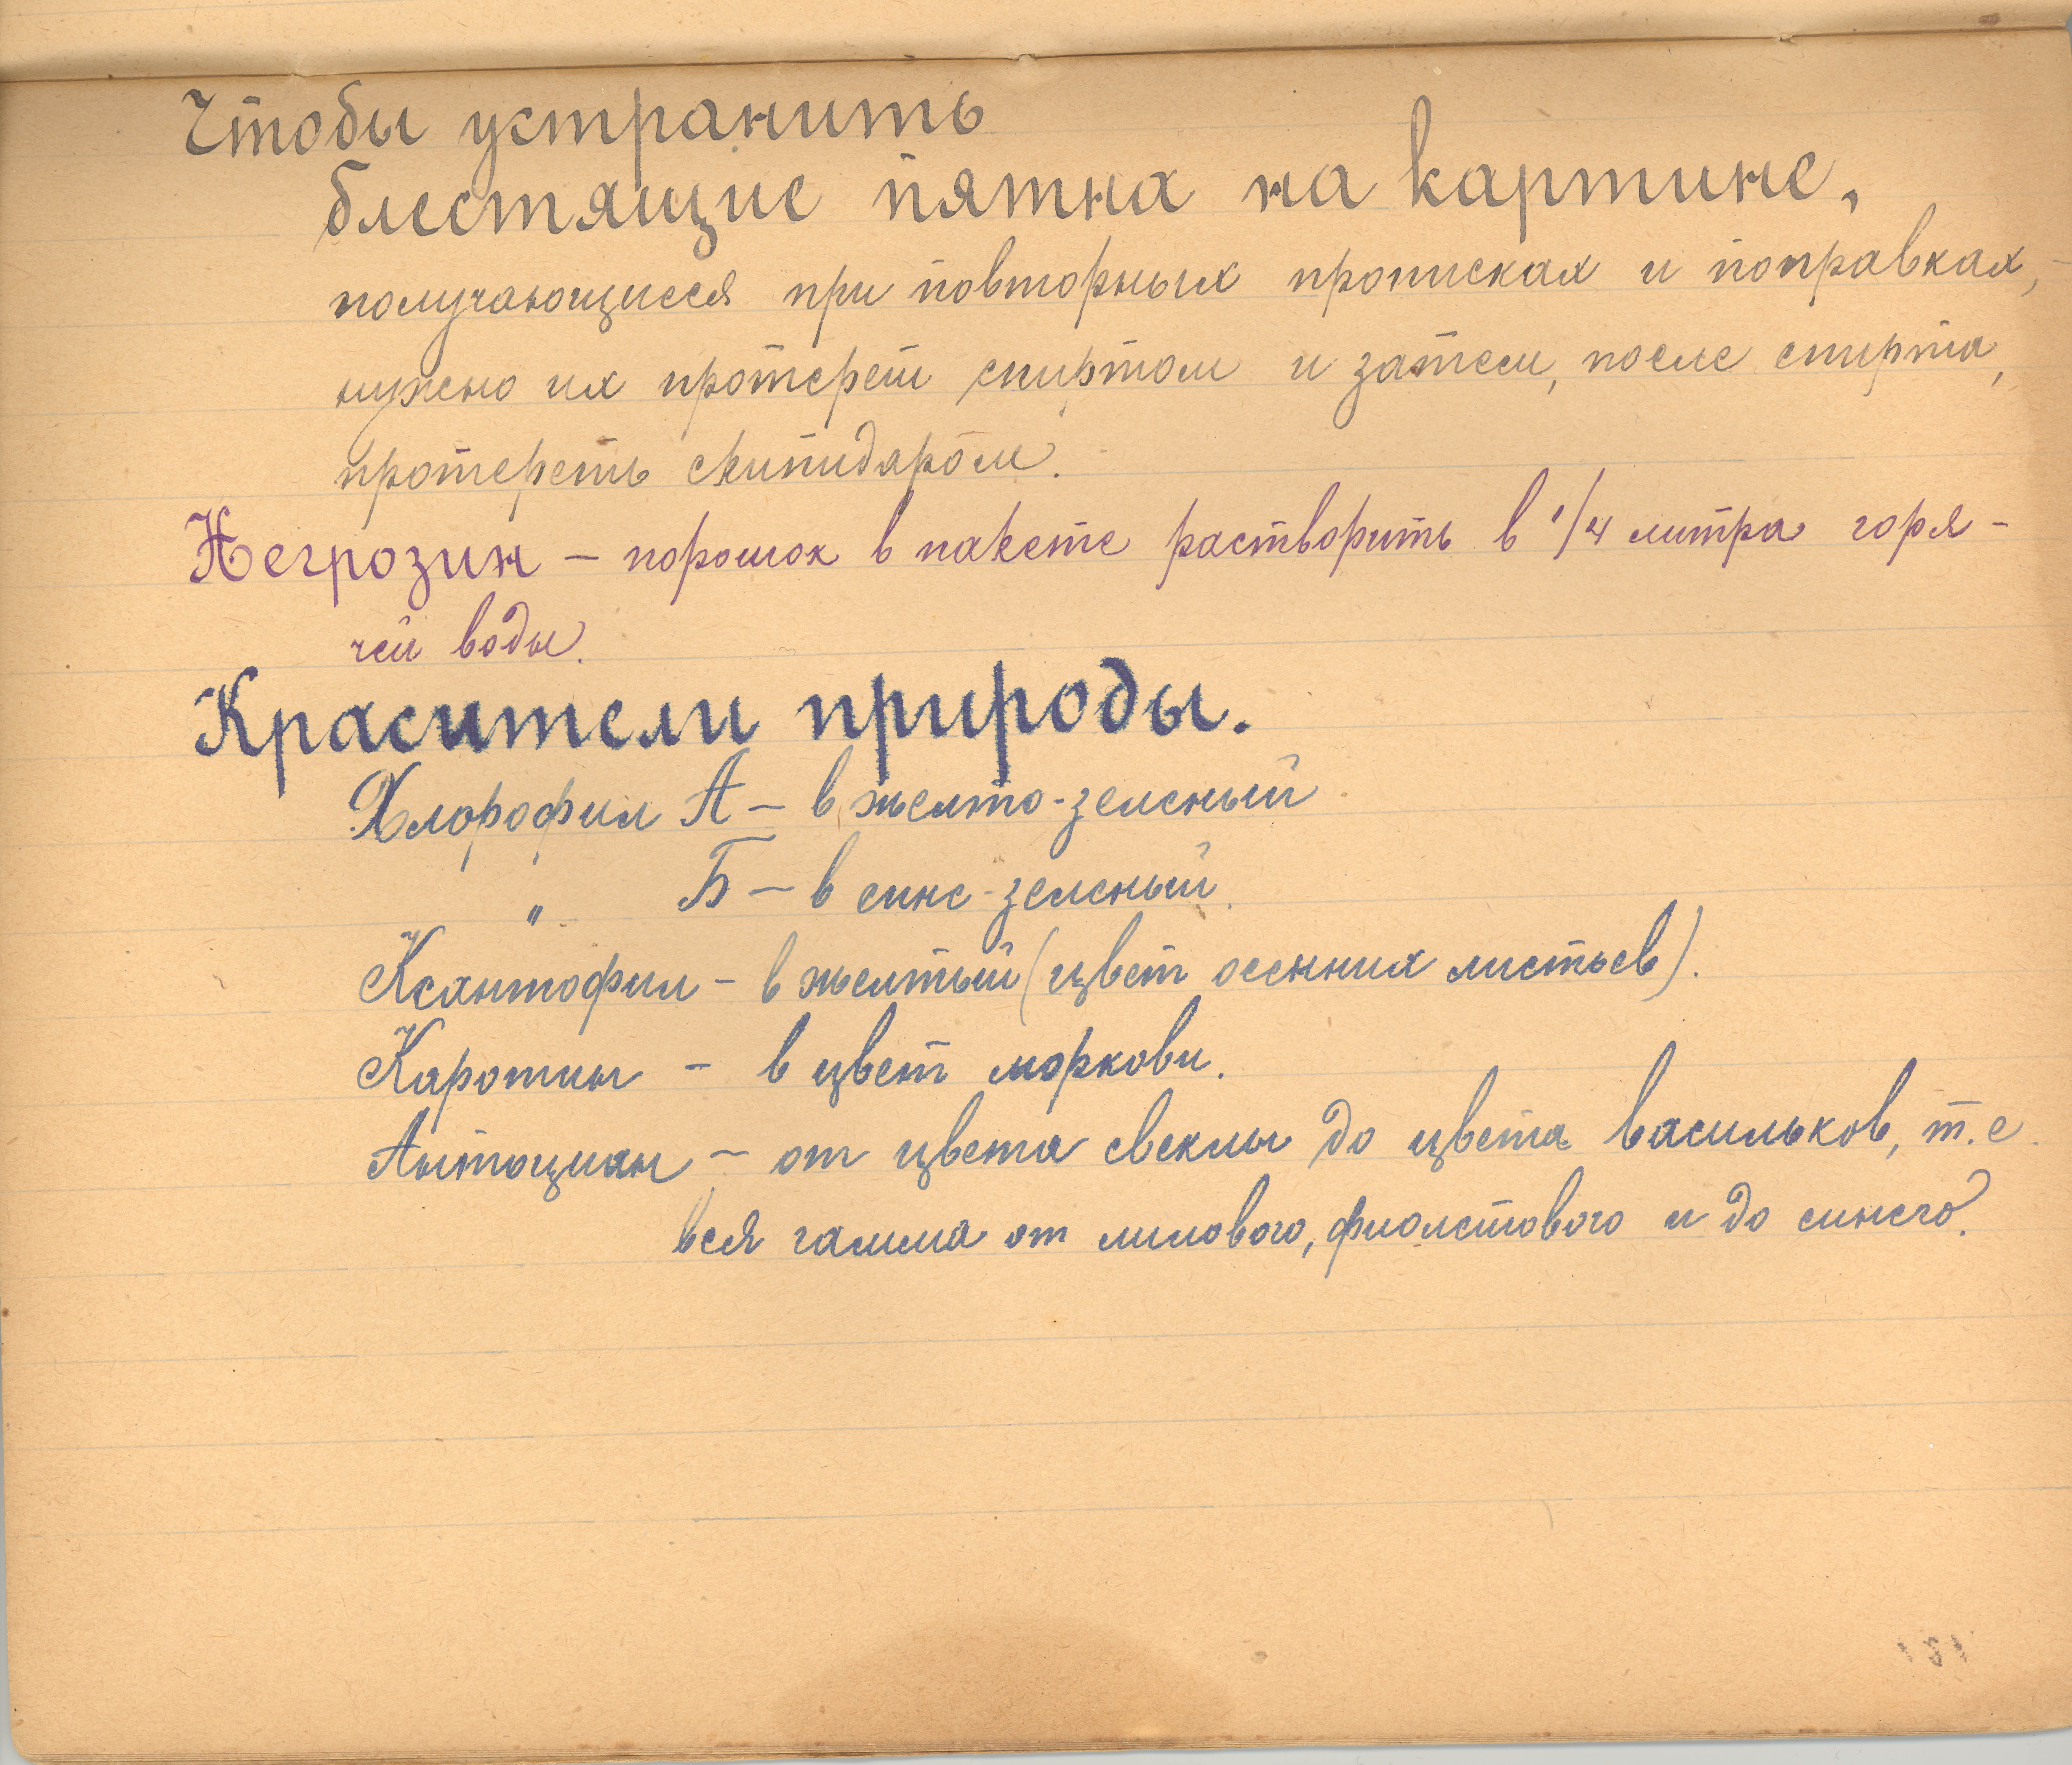 Чтобы устранить
блестящие пятна на картине,
получающиеся при повторных прописках и поправках, -
нужно их протереть спиртом и затем, после спирта,
протереть скипидаром.
Негрозин — порошок в пакете растворить в 1/4 литра горя-
чей воды.
Красители природы.
Хлорофил А — в желто-зеленый
" Б — в сине-зеленый.
Ксантофил - в желтый (цвет осенних листьев).
Каротин - в цвет моркови.
Антоциан - от цвета свеклы до цвета васильков, т.е.
вся гамма от лилового, фиолетового и до синего.